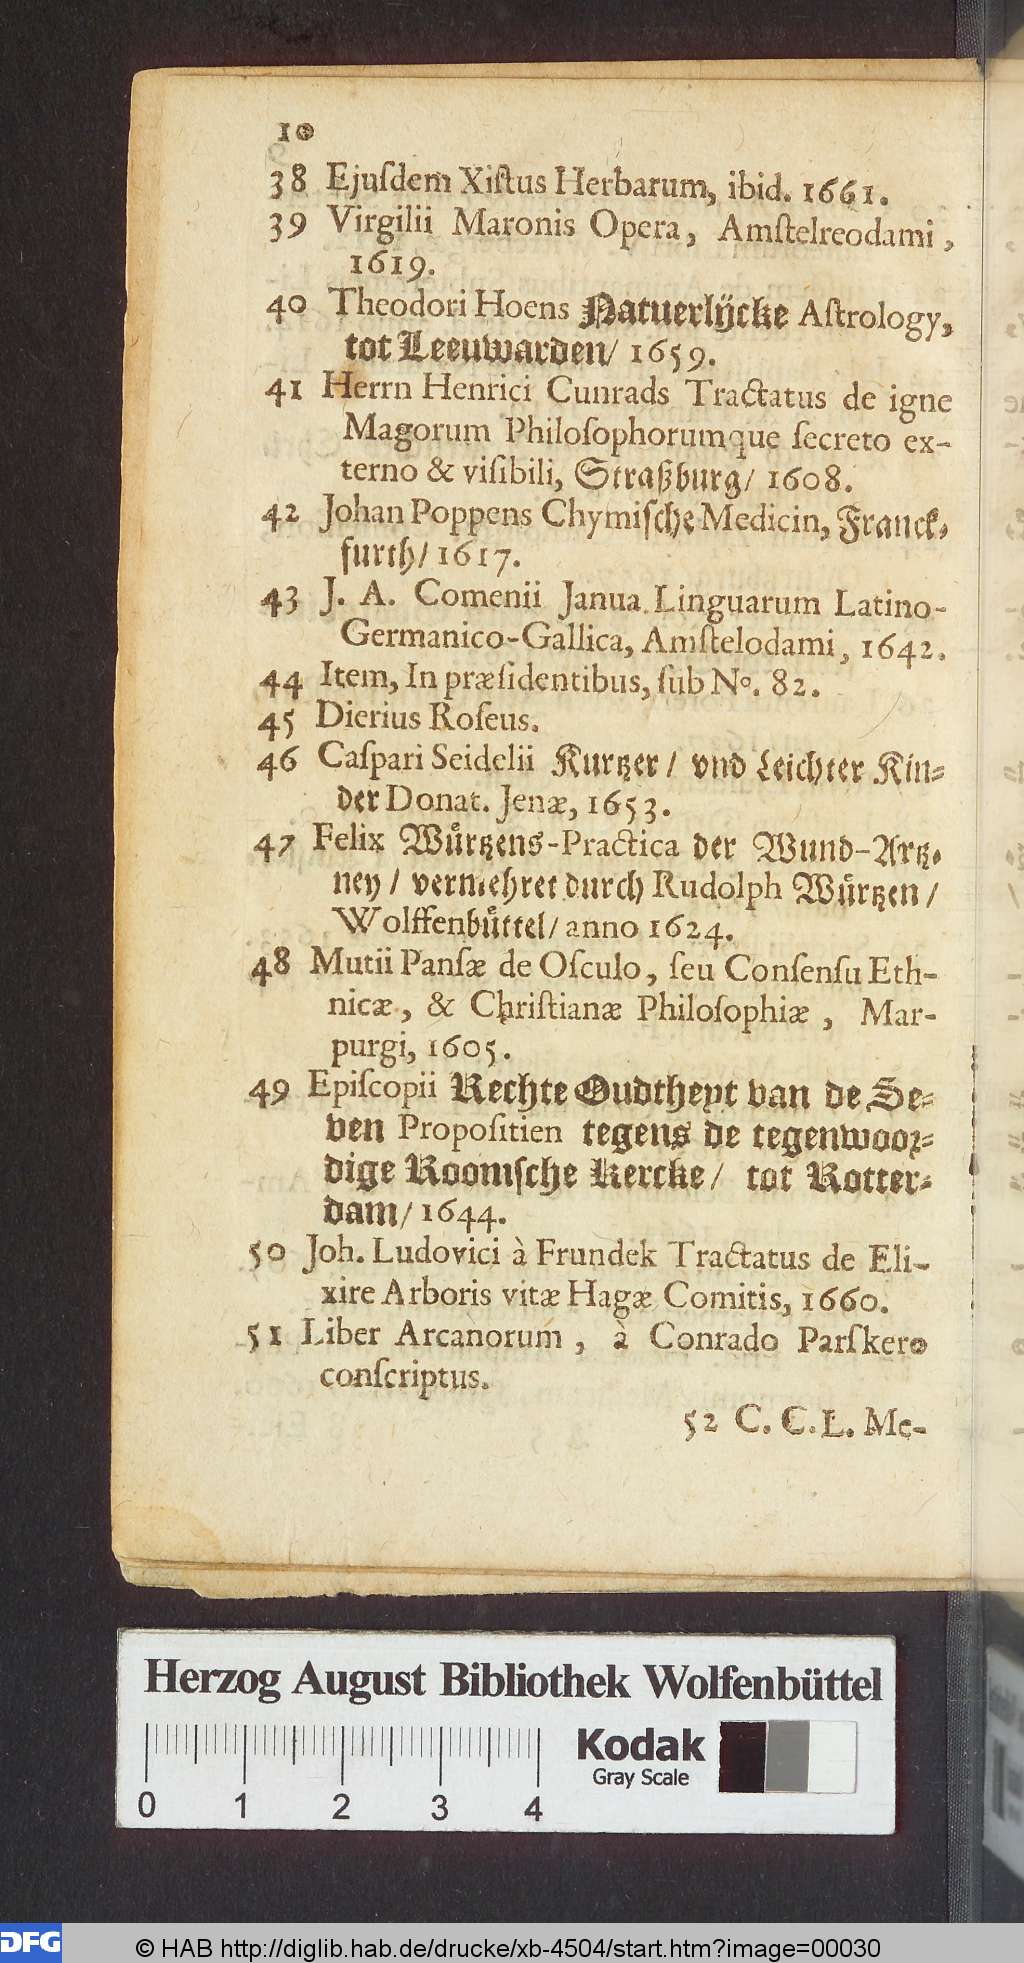 10
38 Ejuſdem Xiſtus Herbarum, ibid. 1661.
39 Virgilii Maronis Opera, Amſtelreodami,
1619.
40 Theodori Hoens Natuerlijcke Aſtrology,
tot Leeuwarden/ 1659.
41 Herrn Henrici Cunrads Tractatus de igne
Magorum Philoſophorumque ſecreto ex-
terno & viſibili, Straßburg/ 1608.
42 Johan Poppens Chymiſche Medicin, Franck-
furth/ 1617.
43 J. A. Comenii Janua Linguarum Latino-
Germanico-Gallica, Amſtelodami, 1642.
44 Item, In præſidentibus, ſub No. 82.
45 Dierius Roſeus.
46 Caſpari Seidelii Kurtzer / vnd Leichter Kin-
der Donat. Jenæ, 1653.
47 Felix Wuͤrtzens-Practica der Wund-Artz-
ney / vermehret durch Rudolph Wuͤrtzen /
Wolffenbuͤttel/ anno 1624.
48 Mutii Panſæ de Oſculo, ſeu Conſenſu Eth-
nicæ, & Chriſtianæ Philoſophiæ, Mar-
purgi, 1605.
49 Epiſcopii Rechte Oudtheyt van de Se-
ven Propoſitien tegens de tegenwoor-
dige Roomſche Kercke/ tot Rotter-
dam/ 1644.
50 Joh. Ludovici à Frundek Tractatus de Eli-
xire Arboris vitæ Hagæ Comitis, 1660.
51 Liber Arcanorum, à Conrado Parſkero
conſcriptus.
52 C. C. L. Me-
Herzog August Bibliothek Wolfenbüttel
Kodak
Gray Scale
0 1 2 3 4
DFG
© HAB http://diglib.hab.de/drucke/xb-4504/start.htm?image=00030